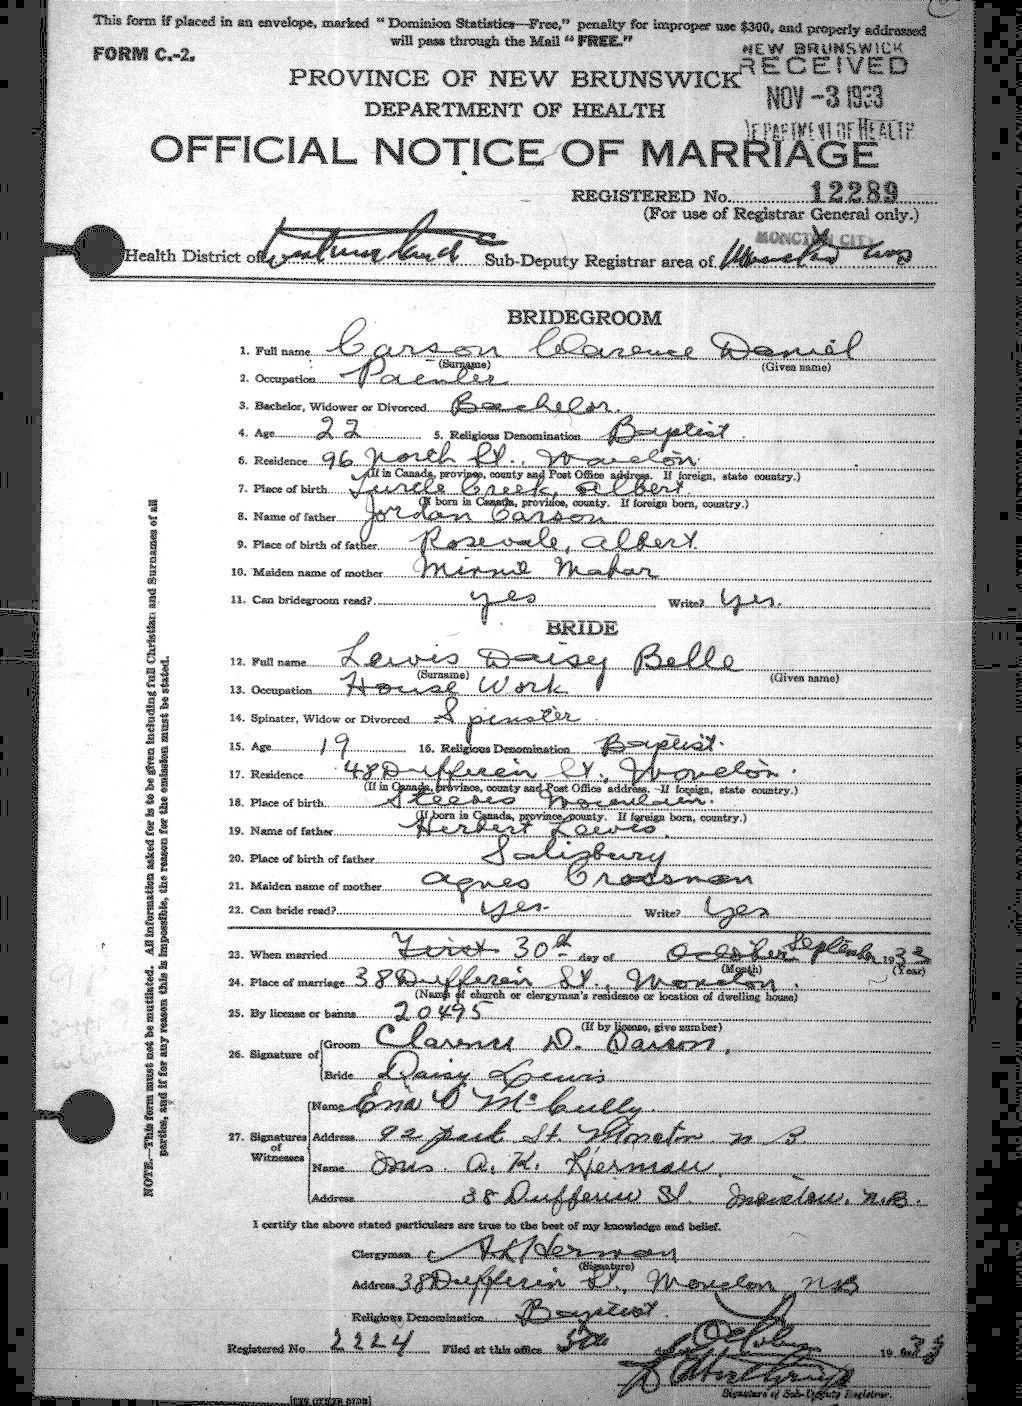 This form if placed in an envelope, marked "Dominion Statistics—Free," penalty for improper use $300, and properly addressed
will pass through the Mail "FREE."
FORM C.-2.
NEW BRUNSWICK
RECEIVED
NOV -3 1933
DEPARTMENT OF HEALTH
PROVINCE OF NEW BRUNSWICK
DEPARTMENT OF HEALTH
OFFICIAL NOTICE OF MARRIAGE
REGISTERED No. 12289
(For use of Registrar General only.)
MONCTON CITY
Health District of Westmorland Sub-Deputy Registrar area of Moncton
BRIDEGROOM
1. Full name Carson Clarence Daniel
(Surname) (Given name)
2. Occupation Painter
3. Bachelor, Widower or Divorced Bachelor.
4. Age 22 5. Religious Denomination Baptist.
6. Residence 96 North St., Moncton.
(If in Canada, province, county and Post Office address. If foreign, state country.)
7. Place of birth Turtle Creek, Albert.
(If born in Canada, province, county. If foreign born, country.)
8. Name of father Jordan Carson
9. Place of birth of father Rosevale, Albert.
10. Maiden name of mother Minnie Mahar
11. Can bridegroom read? yes Write? Yes.
BRIDE
12. Full name Lewis Daisy Belle
(Surname) (Given name)
13. Occupation House Work
14. Spinster, Widow or Divorced Spinster
15. Age 19 16. Religious Denomination Baptist.
17. Residence 48 Dufferin St., Moncton.
(If in Canada, province, county and Post Office address. If foreign, state country.)
18. Place of birth Steeves Mountain.
(If born in Canada, province, county. If foreign born, country.)
19. Name of father Herbert Lewis.
20. Place of birth of father Salisbury
21. Maiden name of mother Agnes Crossman
22. Can bride read? yes Write? Yes
23. When married First 30th day of October September 1933
(Month) (Year)
24. Place of marriage 38 Dufferin St., Moncton.
(Name of church or clergyman's residence or location of dwelling house)
25. By license or banns 20495
(If by license, give number)
26. Signature of Groom Clarence D. Carson,
Bride Daisy Lewis
27. Signatures of Witnesses Name McCully.
Address 92 Park St. Moncton N B
Name Mrs. A. K. Herman
Address 38 Dufferin St. Moncton. N.B.
I certify the above stated particulars are true to the best of my knowledge and belief.
Clergyman A K Herman
(Signature)
Address 38 Dufferin St., Moncton NB
Religious Denomination Baptist.
Registered No 2224 Filed at this office 5th October 1933
Signature of Sub-Deputy Registrar.
NOTE.—This form must not be mutilated. All information asked for is to be given including full Christian and Surnames of all
parties, and if for any reason this is impossible, the reason for the omission must be stated.